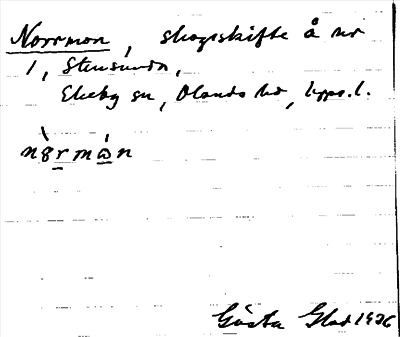 Norrmon, skogsskifte å nr
1, Stensunda,
Ekeby sn, Olands hd, Upps. l.
nòrmón
Gösta Glad 1936